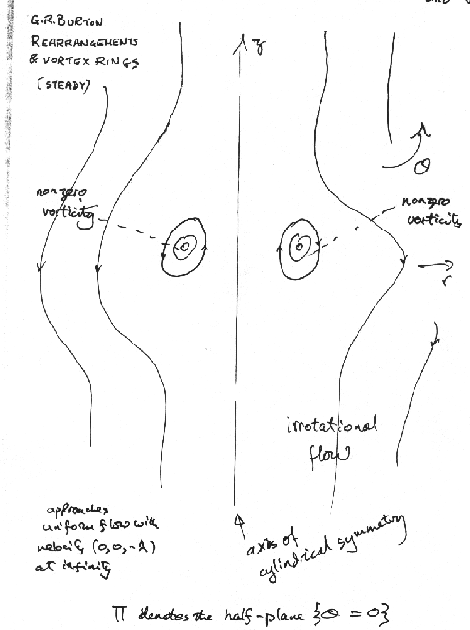 G.R. BURTON
REARRANGEMENTS
& VORTEX RINGS
(STEADY)
z
θ
nonzero
vorticity
nonzero
vorticity
r
irrotational
flow
approaches
uniform flow with
velocity (0,0,-λ)
at infinity
axis of
cylindrical symmetry
Π denotes the half-plane {θ = 0}